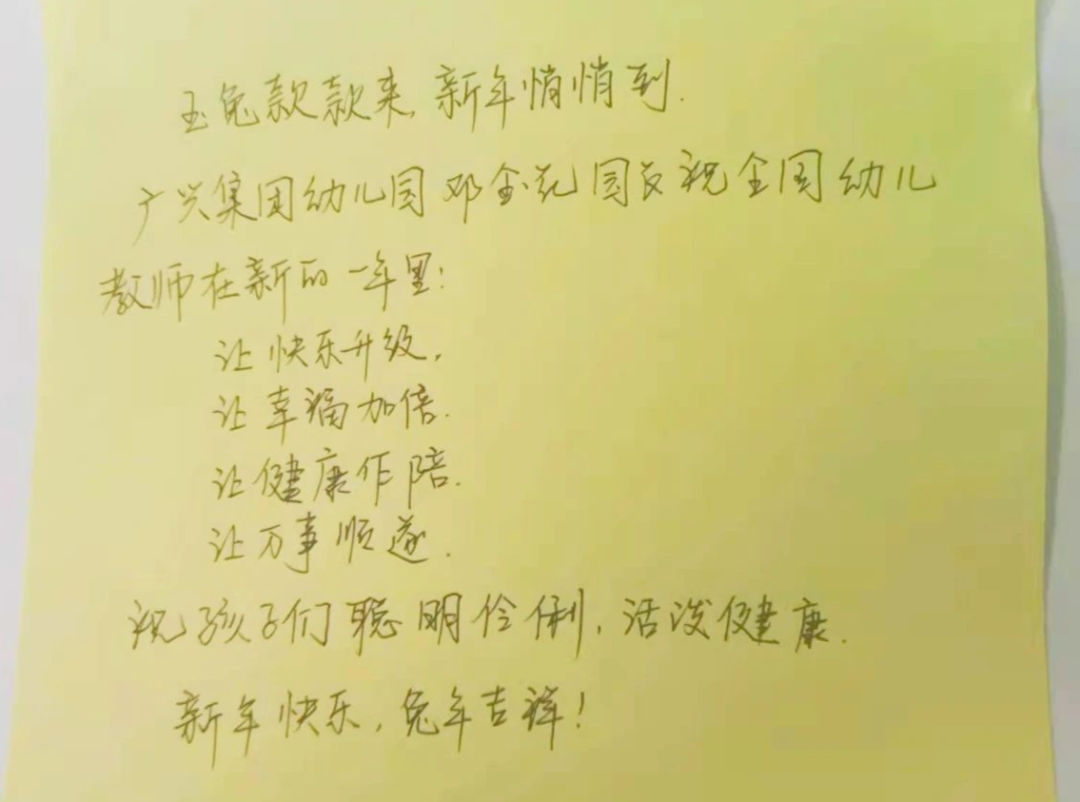 玉兔款款来,新年悄悄到.
广兴集团幼儿园邓金花园长祝全国幼儿
教师在新的一年里:
让快乐升级,
让幸福加倍.
让健康作陪.
让万事顺遂.
祝孩子们聪明伶俐,活泼健康.
新年快乐,兔年吉祥!